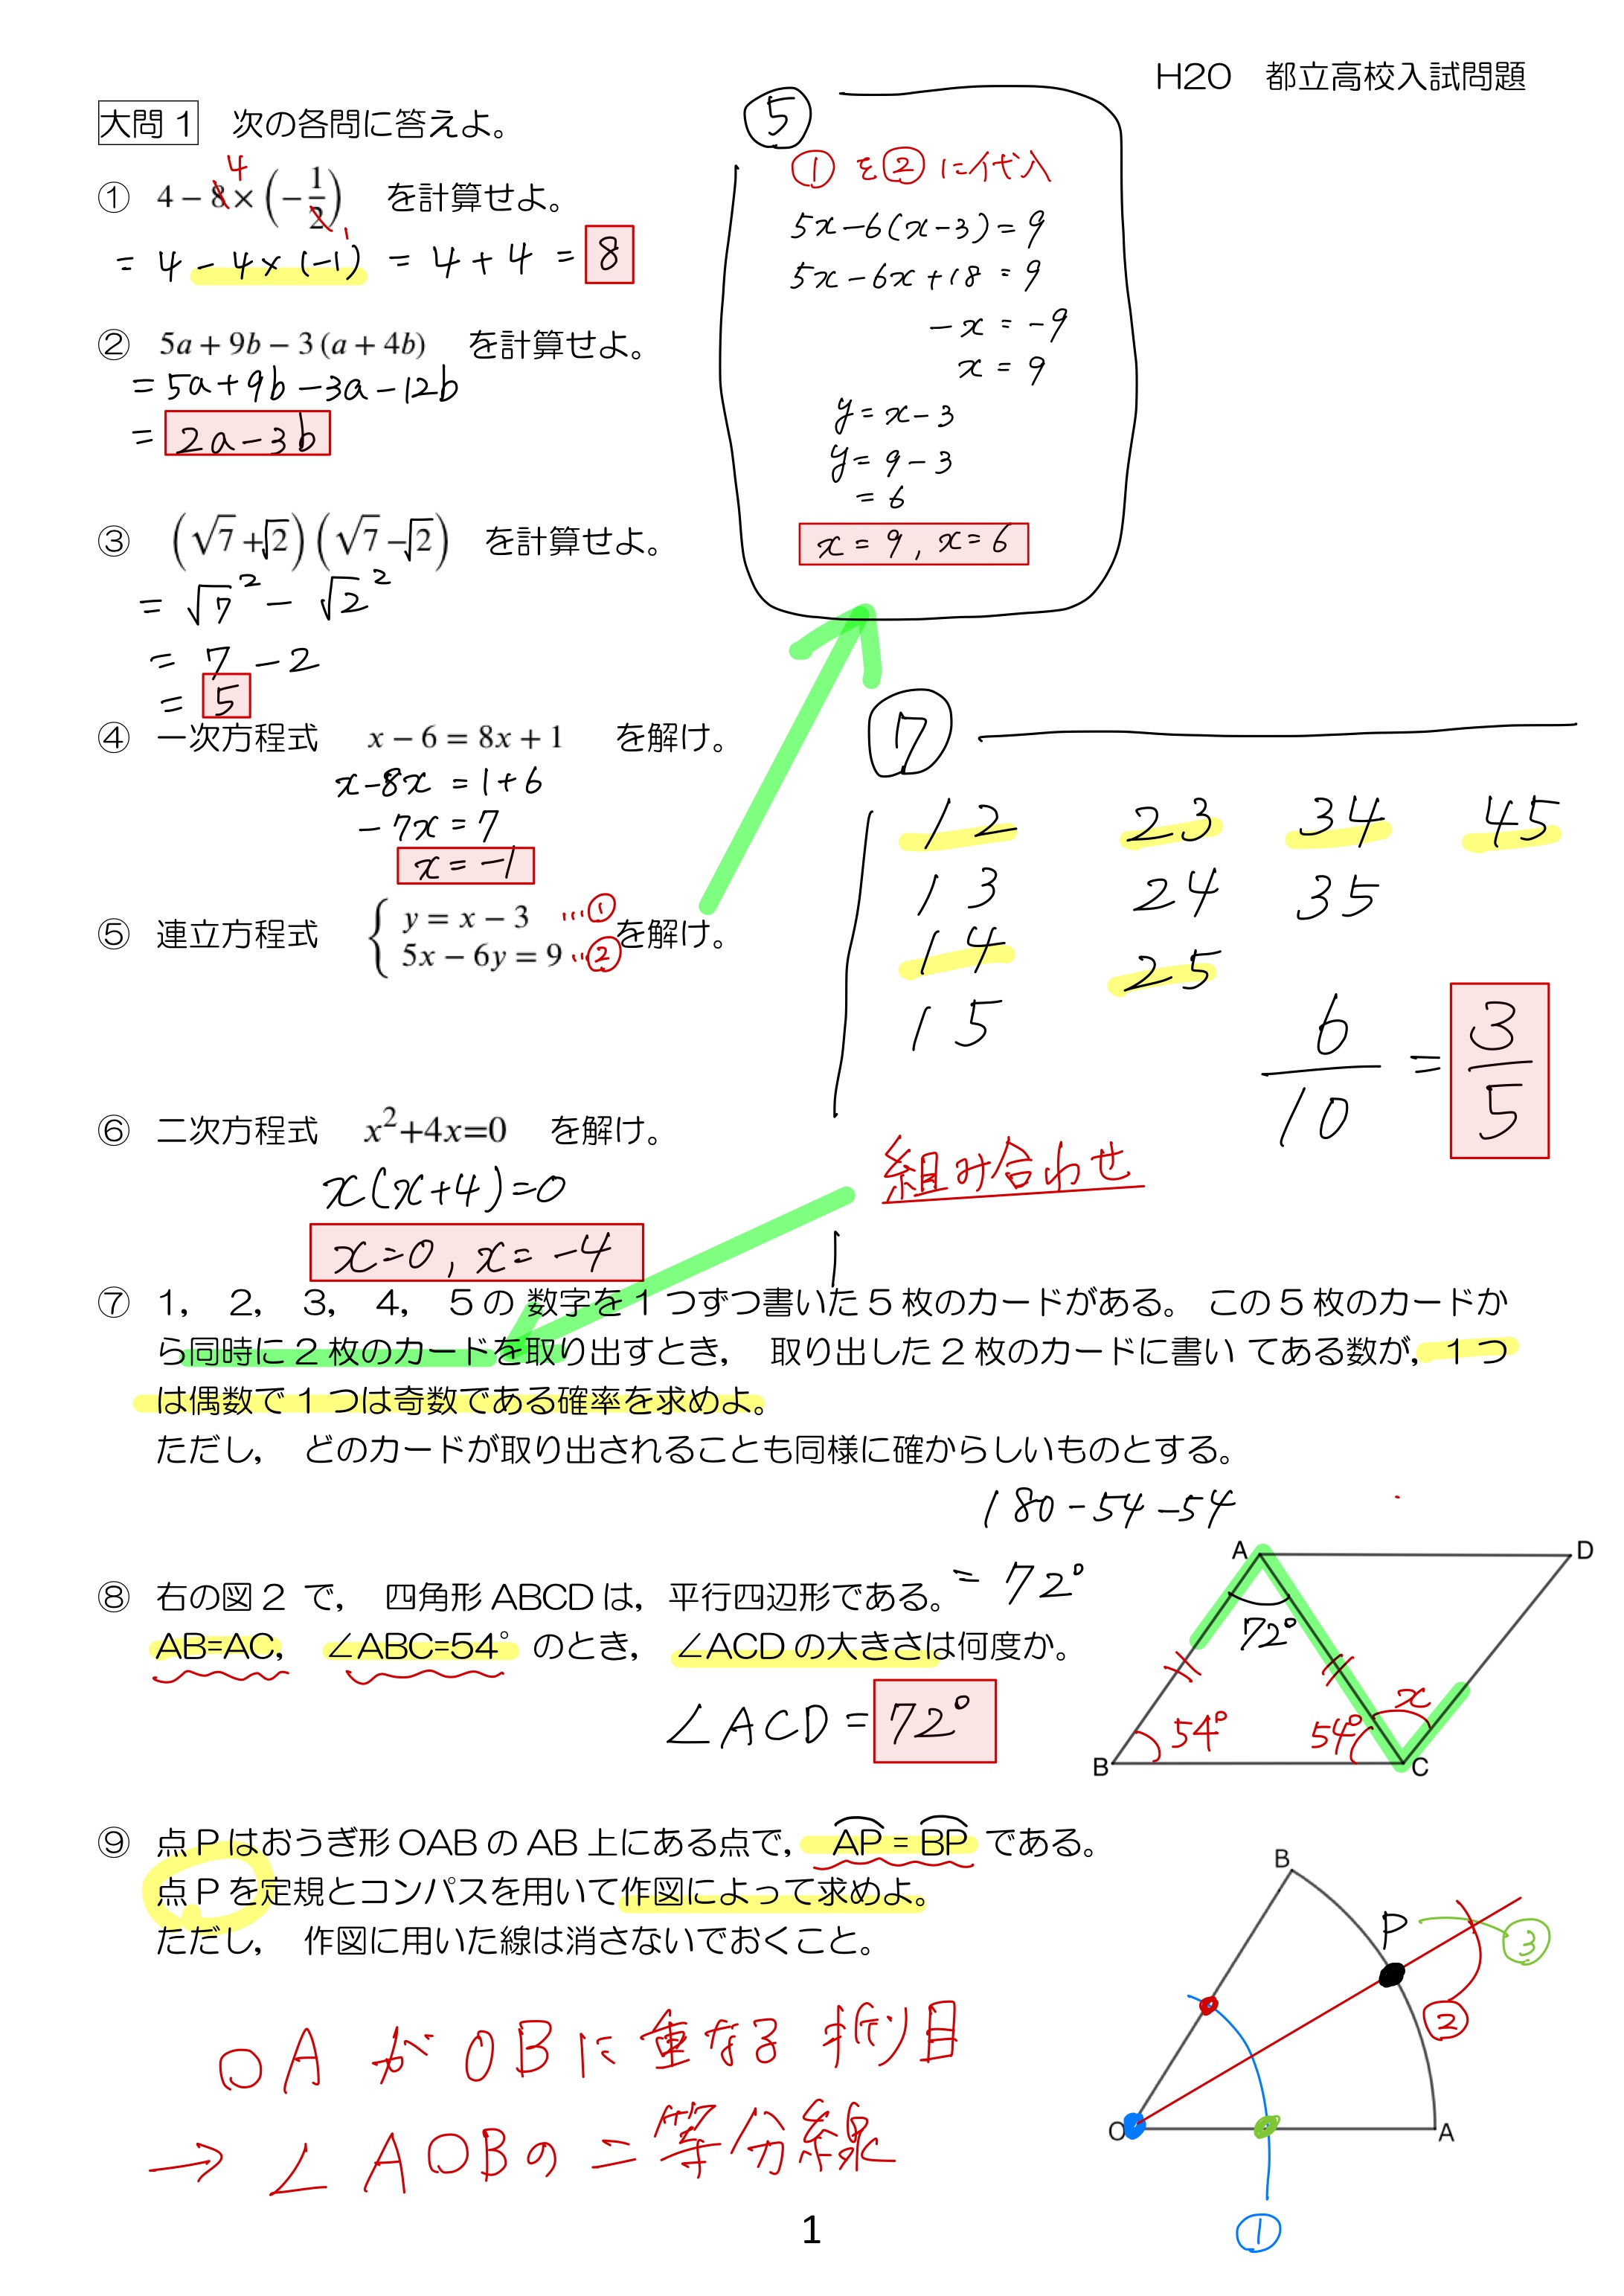 H20 都立高校入試問題
大問1 次の各問に答えよ。
① 4 − 8 × (− 1/2) を計算せよ。
4
1
= 4 − 4 × (−1) = 4 + 4 = 8
② 5a + 9b − 3 (a + 4b) を計算せよ。
= 5a + 9b − 3a − 12b
= 2a − 3b
③ (√7 + √2) (√7 − √2) を計算せよ。
= √7² − √2²
= 7 − 2
= 5
④ 一次方程式 x − 6 = 8x + 1 を解け。
x − 8x = 1 + 6
− 7x = 7
x = −1
⑤ 連立方程式 { y = x − 3 …① 5x − 6y = 9 …② を解け。
⑤
① を ② に代入
5x − 6(x − 3) = 9
5x − 6x + 18 = 9
− x = −9
x = 9
y = x − 3
y = 9 − 3
= 6
x = 9 , x = 6
⑥ 二次方程式 x²+4x=0 を解け。
x(x+4)=0
x=0 , x= −4
⑦
12 23 34 45
13 24 35
14 25
15
6/10 = 3/5
組み合わせ
⑦ 1, 2, 3, 4, 5の 数字を1つずつ書いた5枚のカードがある。 この5枚のカードか
ら同時に2枚のカードを取り出すとき, 取り出した2枚のカードに書い てある数が, 1つ
は偶数で1つは奇数である確率を求めよ。
ただし, どのカードが取り出されることも同様に確からしいものとする。
180 − 54 − 54
= 72°
⑧ 右の図2 で, 四角形ABCDは, 平行四辺形である。
AB=AC, ∠ABC=54° のとき, ∠ACDの大きさは何度か。
∠ACD = 72°
A D
72°
54° 54° x
B C
⑨ 点Pはおうぎ形OABのAB上にある点で, AP = BP である。
点Pを定規とコンパスを用いて作図によって求めよ。
ただし, 作図に用いた線は消さないでおくこと。
OA が OB に重なる 折り目
→ ∠AOBの二等分線
B
P
③
②
O A
①
1